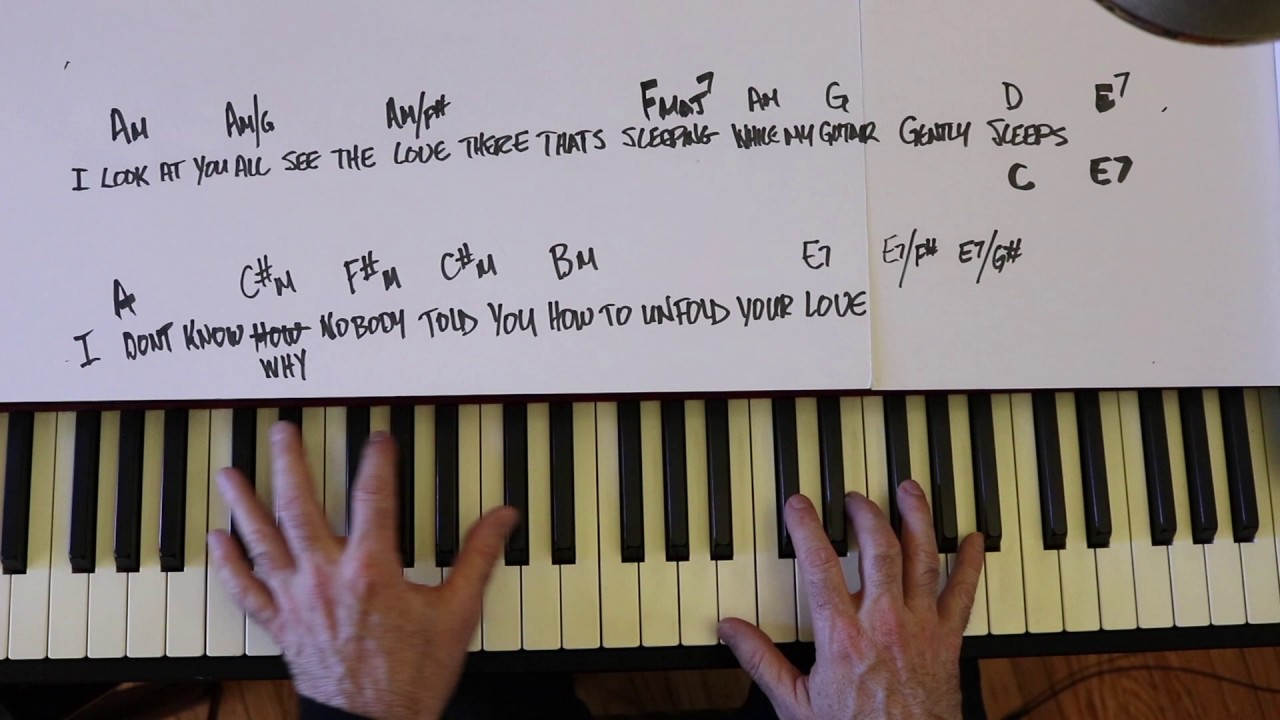 AM AM/G AM/F# FMAJ7 AM G D E7
I LOOK AT YOU ALL SEE THE LOVE THERE THATS SLEEPING WHILE MY GUITAR GENTLY SLEEPS
C E7
A C#M F#M C#M BM E7 E7/F# E7/G#
I DONT KNOW HOW NOBODY TOLD YOU HOW TO UNFOLD YOUR LOVE
WHY